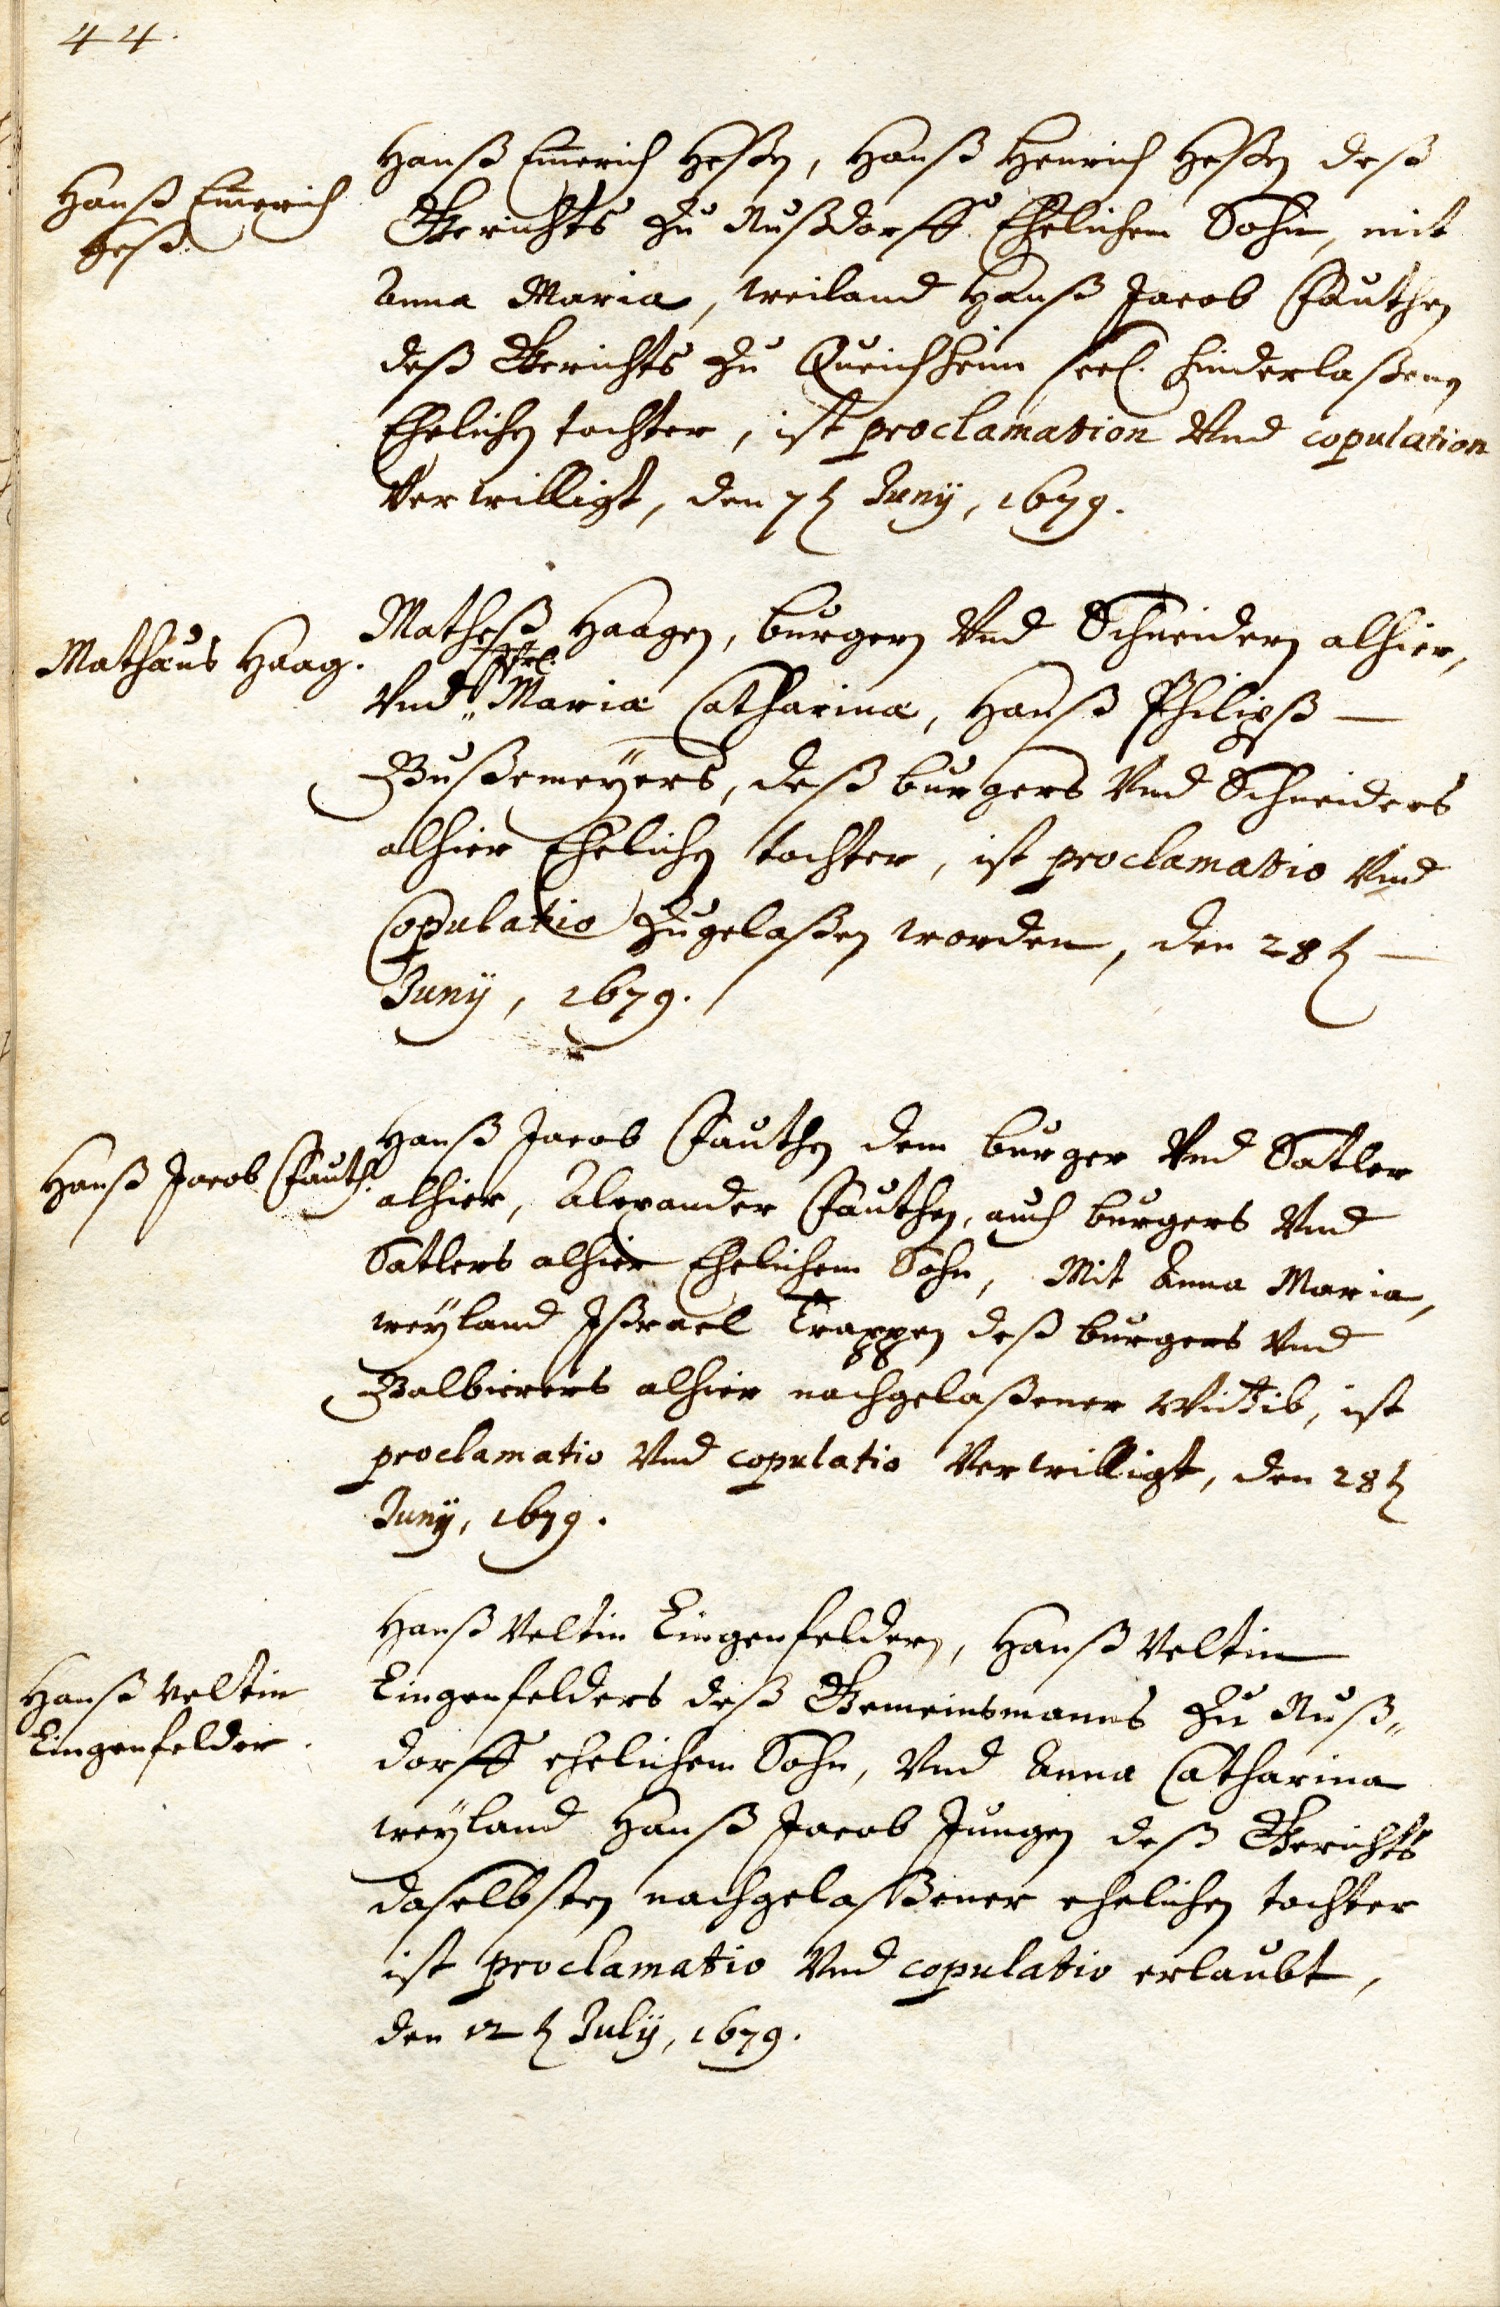 44.
Hanß Emerich
Heß.
Hanß Emerich Heßen, Hanß Henrich Heßen deß
Gerichts zu Nußdorff Ehelichem Sohn, mit
Anna Maria, weiland Hanß Jacob Fauthen
deß Gerichts zu Queichheim seel. hinderlaßenen
Ehelichen tochter, ist proclamation Vnd copulation
Verwilligt, den 7t Juny, 1679.
Mathäus Haag.
Matheß Haagen, burgern Vnd Schneidern alhier,
Vnd Maria Catharina, Hanß Philipß
Bußemeyers, deß burgers Vnd Schneiders
alhier Ehelichen tochter, ist proclamatio Vnd
Copulatio zugelaßen worden, den 28t
Juny, 1679.
Hanß Jacob Fauth.
Hanß Jacob Fauthen dem burger Vnd Satler
alhier, Alexander Fauthen, auch burgers Vnd
Satlers alhier Ehelichem Sohn, Mit Anna Maria,
weyland Ißrael Trappen deß burgers Vnd
Balbierers alhier nachgelaßener Wittib, ist
proclamatio Vnd copulatio Verwilligt, den 28t
Juny, 1679.
Hanß Veltin
Lingenfelder.
Hanß Veltin Lingenfeldern, Hanß Veltin
Lingenfelders deß Gemeinsmanns zu Nuß„
dorff ehelichem Sohn, Vnd Anna Catharina
weyland Hanß Jacob Jungen deß Gerichts
daselbsten nachgelaßener ehelichen tochter
ist proclamatio Vnd copulatio erlaubt,
den 12t July, 1679.